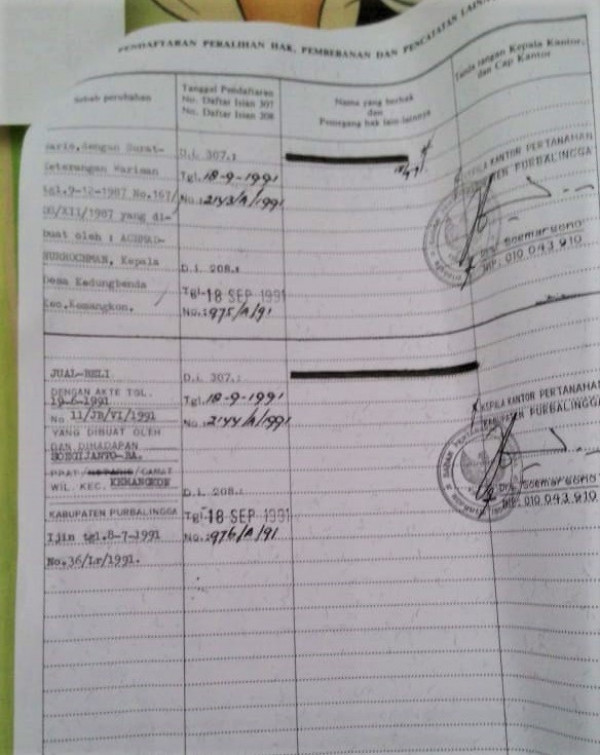 PENDAFTARAN PERALIHAN HAK, PEMBEBANAN DAN PENCATATAN LAINNYA
Sebab perubahan
Tanggal Pendaftaran
No. Daftar Isian 307
No. Daftar Isian 208
Nama yang berhak
dan
Pemegang hak lain-lainnya
Tanda tangan Kepala Kantor,
dan Cap Kantor
Waris, dengan Surat-
keterangan Warisan
tgl.9-12-1987 No.167/
/XII/1987 yang di-
buat oleh : ACHMAD-
NURROCHMAN, Kepala
Desa Kedungbenda
Kec.Kemangkon.
D.i. 307.:
Tgl. 18-9-1991
No.: 2143/A/1991
D.i. 208.:
Tgl. 18 SEP 1991
No.: 975/A/91
KEPALA KANTOR PERTANAHAN
KABUPATEN PURBALINGGA
Drs. Soemarsono
NIP: 010 043 910
JUAL-BELI
DENGAN AKTE TGL.
19-6-1991
No 11/JB/VI/1991
YANG DIBUAT OLEH
DAN DIHADAPAN
SOEGIJANTO-BA.
PPAT/NOTARIS/CAMAT
WIL. KEC. KEMANGKON
KABUPATEN PURBALINGGA
Ijin tgl.8-7-1991
No.36/Lr/1991.
D.i. 307.:
Tgl. 18-9-1991
No.: 2144/A/1991
D.i. 208.:
Tgl. 18 SEP 1991
No.: 976/A/91
KEPALA KANTOR PERTANAHAN
KABUPATEN PURBALINGGA
Drs. Soemarsono
NIP: 010 043 910